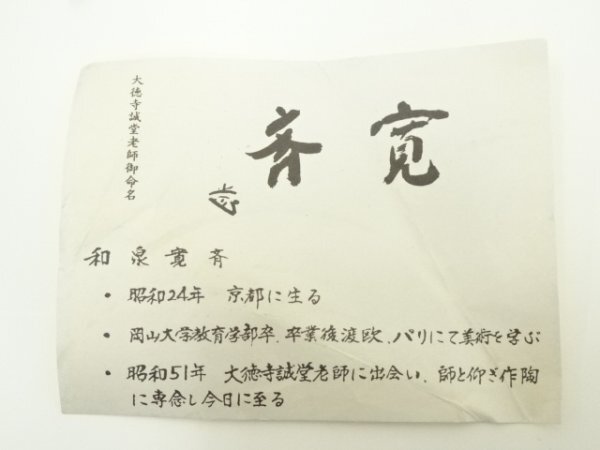 寛斉
大徳寺誠堂老師御命名
和泉寛斉
・昭和24年 京都に生る
・岡山大学教育学部卒、卒業後渡欧、パリにて美術を学ぶ
・昭和51年 大徳寺誠堂老師に出会い、師と仰ぎ作陶
に専念し今日に至る